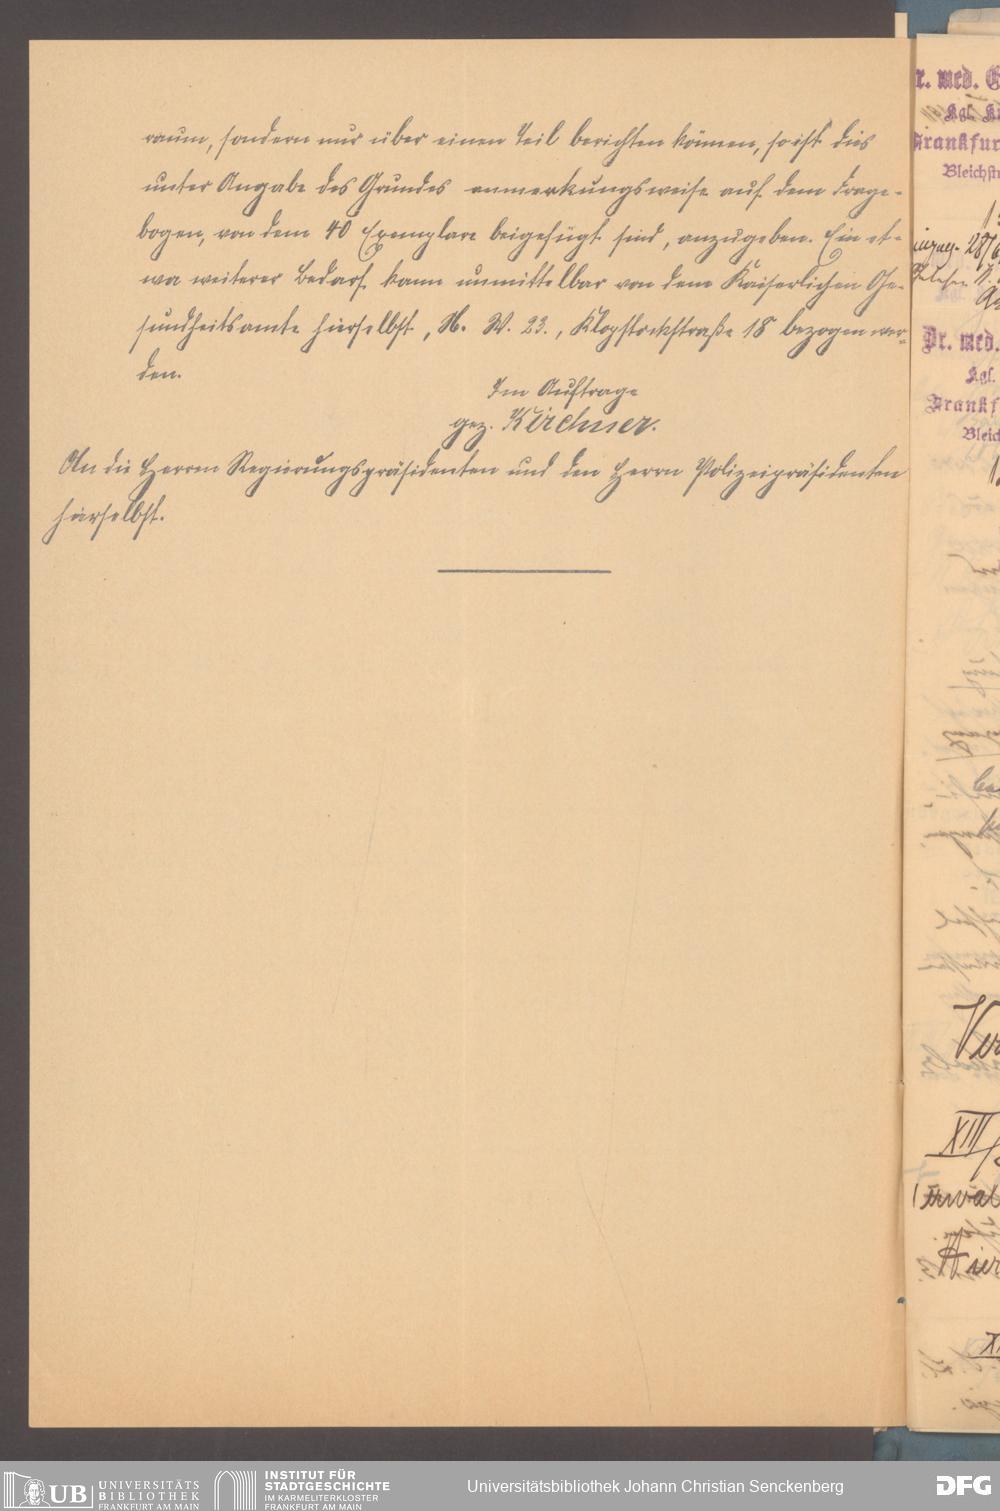 raum, sondern nur über einen Teil berichten können, so ist dies
unter Angabe des Grundes anmerkungsweise auf dem Frage-
bogen, von dem 40 Exemplare beigefügt sind, anzugeben. Ein et-
wa weiterer Bedarf kann unmittelbar von dem Kaiserlichen Ge-
sundheitsamte hierselbst, N. W. 23., Klopstockstraße 18 bezogen wer-
den.
Im Auftrage
gez. Kirchner.
An die Herren Regierungspräsidenten und den Herrn Polizeipräsidenten
hierselbst.
r. med.
Kgl.
Frankfur
Bleichstr
Dr. med.
Kgl.
Frankf
Bleic
Ver
XIII
Hier
UB UNIVERSITÄTS
BIBLIOTHEK
FRANKFURT AM MAIN
INSTITUT FÜR
STADTGESCHICHTE
IM KARMELITERKLOSTER
FRANKFURT AM MAIN
Universitätsbibliothek Johann Christian Senckenberg
DFG